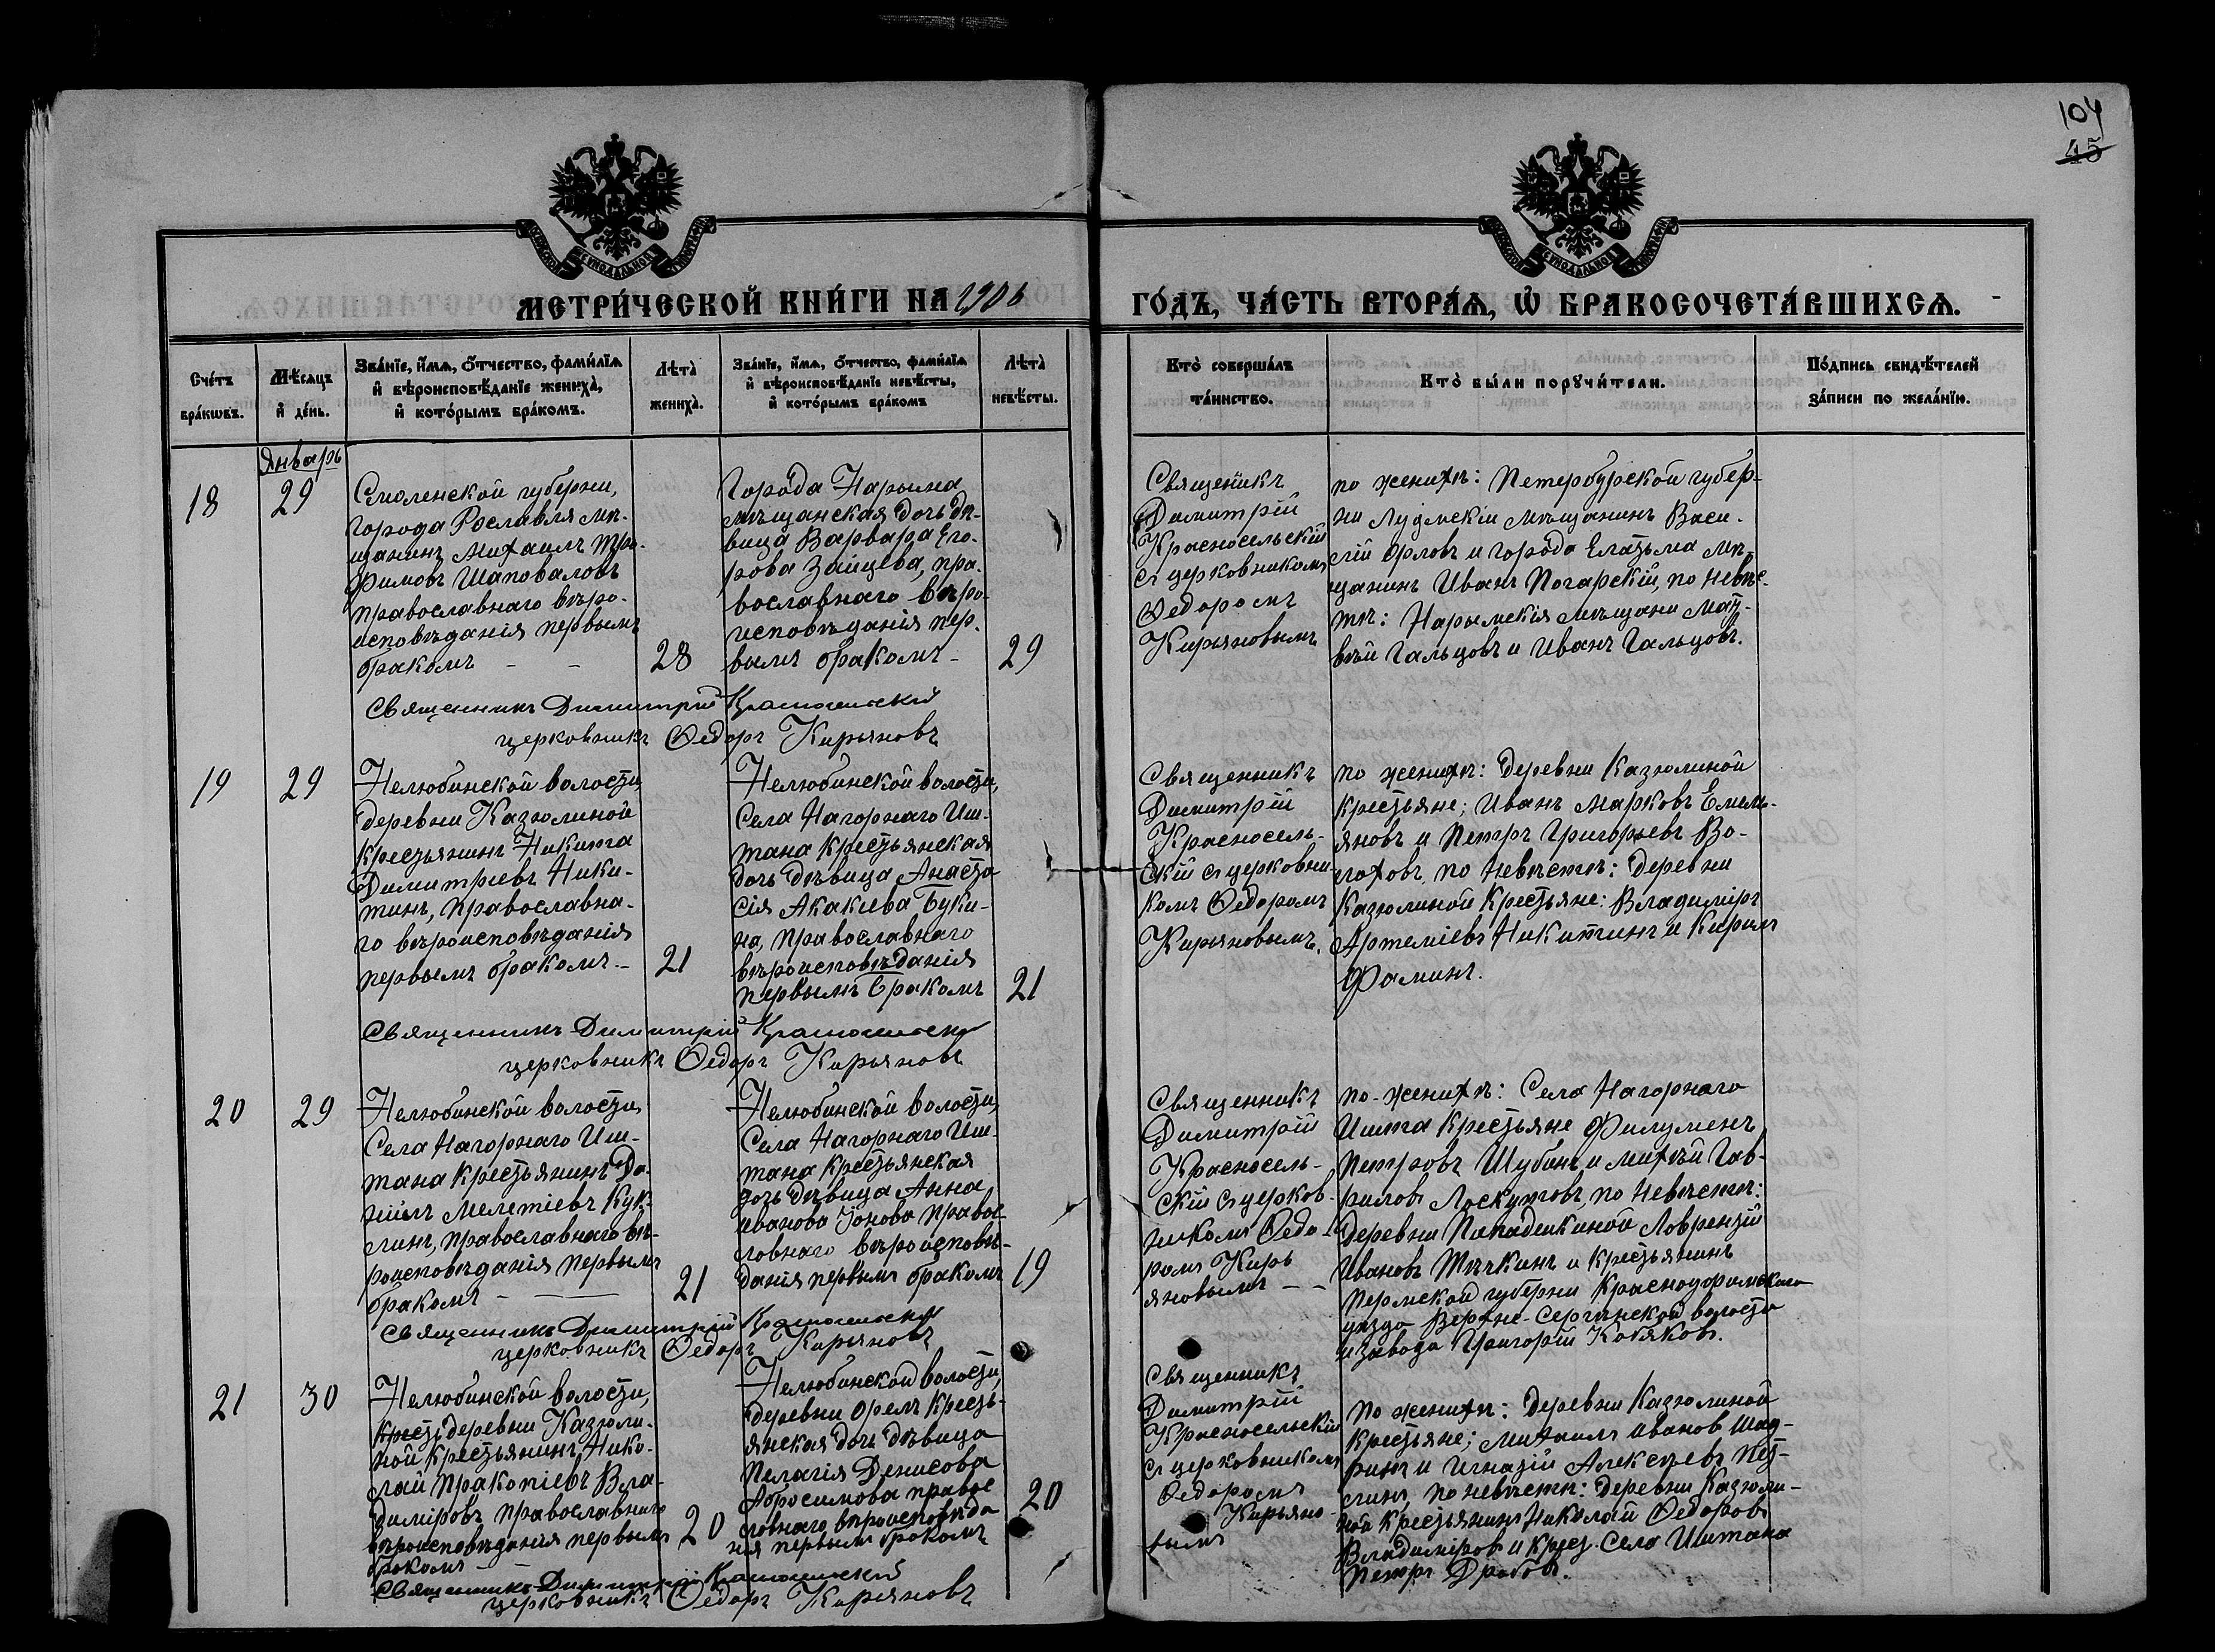 104
45
МЕТРИ́ЧЕСКОЙ КНИ́ГИ НА 1906
ГО́ДЪ, ЧА́СТЬ ВТОРА́Ѧ, Ѽ БРАКОСОЧЕТА́ВШИХСѦ.
Сче́тъ бра́кѡвъ.
Мѣ́сѧцъ и҆ де́нь.
Зва́нїе, и҆́мѧ, ѻ҆́тчество, фами́лїѧ
и҆ вѣроисповѣ́данїе жениха̀,
и҆ кото́рымъ бра́комъ.
Лѣ́та жениха̀.
Зва́нїе, и҆́мѧ, ѻ҆́тчество, фами́лїѧ
и҆ вѣроисповѣ́данїе невѣ́сты,
и҆ кото́рымъ бра́комъ
Лѣ́та невѣ́сты.
Кто̀ соверша́лъ
та́инство.
Кто̀ бы́ли порꙋчи́тели.
По́дпись свидѣ́телей
за́писи по жела́нїю.
Январь
18
29
Смоленской губерни,
города Рославля мѣ-
щанинъ Михаилъ Тро-
фимовъ Шаповаловъ
православнаго вѣро-
исповѣданія первымъ
бракомъ - -
28
Города Нарыма
мѣщанская дочь дѣ-
вица Варвара Его-
рова Зайцева, пра-
вославнаго вѣро-
исповѣданія пер-
вымъ бракомъ -
29
Священикъ
Димитрій
Красносельскій
съ церковникомъ
Ѳедоромъ
Кирьяновымъ
по женихѣ: Петербурской губер-
ни мѣщанинъ Васи-
лій Орловъ и города Елатьма мѣ-
щанинъ Иванъ Погарскій, по невѣс-
тѣ: Нарымскія мѣщани Мат-
вѣй Гальцовъ и Иванъ Гальцовъ.
Священникъ Димитрій Красносельскій
церковникъ Ѳедоръ Кирьяновъ
19
29
Нелюбинской волости,
деревни Казюлиной
крестьянинъ Никита
Димитріевъ Ники-
тинъ, православна-
го вѣроисповѣданія
первымъ бракомъ. -
21
Нелюбинской волости,
села Нагорнаго Иш-
тана крестьянская
дочь дѣвица Анаста
сія Акакіева Буки-
на, православнаго
вѣроисповѣданія
первымъ бракомъ
21
Священникъ
Димитрій
Красносель-
скій съ церковни-
комъ Ѳедоромъ
Кирьяновымъ.
по женихѣ: деревни Казюлиной
крестьяне; Иванъ Марковъ Емель-
яновъ и Петръ Григорьевъ Во-
лоховъ, по невѣстѣ: деревни
Казюлиной крестьяне: Владиміръ
Артеміевъ Никитинъ и Кирилъ
Фоминъ.
Священникъ Димитрій Красносельскій
церковникъ Ѳедоръ Кирьяновъ
20
29
Нелюбинской волости,
села Нагорнаго Иш-
тана крестьянинъ Да-
ніилъ Мелетіевъ Кук-
линъ, православнаго вѣ-
роисповѣданія первымъ
бракомъ -
21
Нелюбинской волости,
села Нагорнаго Иш-
тана крестьянская
дочь дѣвица Анна
Иванова Іонова правос-
лавнаго вѣроисповѣ-
данія первымъ бракомъ
19
Священникъ
Димитрій
Красносель-
скій съ церков-
никомъ Ѳедо-
ромъ Кирь
яновымъ - -
по-женихѣ: Села Нагорнаго
крестьяне Филуменъ
Петровъ Шубинъ и Михѣй Гав-
риловъ Лоскутовъ, по невѣстѣ:
деревни Попадейкиной Лаврентій
Ивановъ Тѣчкинъ и крестьянинъ
Пермской губерни Красноуфимскаго
уѣзда Верхне-Сергинской волости
и завода Григорій
Священникъ Димитрій Красносельскій
церковникъ Ѳедоръ Кирьяновъ
21
30
Нелюбинской волости,
крест деревни Казюли-
ной крестьянинъ Нико-
лай Прокопіевъ Вла-
диміровъ православнаго
вѣроисповѣданія первымъ
бракомъ -
20
Нелюбинской волости,
деревни Орелъ кресть-
янская дочь дѣвица
Пелагія Денисова
Абросимова правос
лавнаго вѣроисповѣда
нія первымъ бракомъ
20
Священникъ
Димитрій
Красносельскій
съ церковникомъ
Ѳедоромъ
Кирьяно-
вымъ
по женихѣ: деревни Казюлиной
крестьяне; Михаилъ Иванов Шад-
ринъ и Игнатій Алексѣевъ Пет-
линъ, по невѣстѣ: деревни Казюли-
ной крестьянинъ Николай Ѳедоровъ
Владиміровъ и крест. села Иштана
Петръ Дробов.
Священникъ Димитрій Красносельскій
церковникъ Ѳедоръ Кирьяновъ